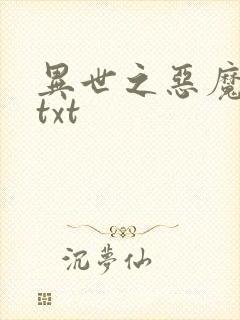 異世之惡魔
txt
沉夢仙